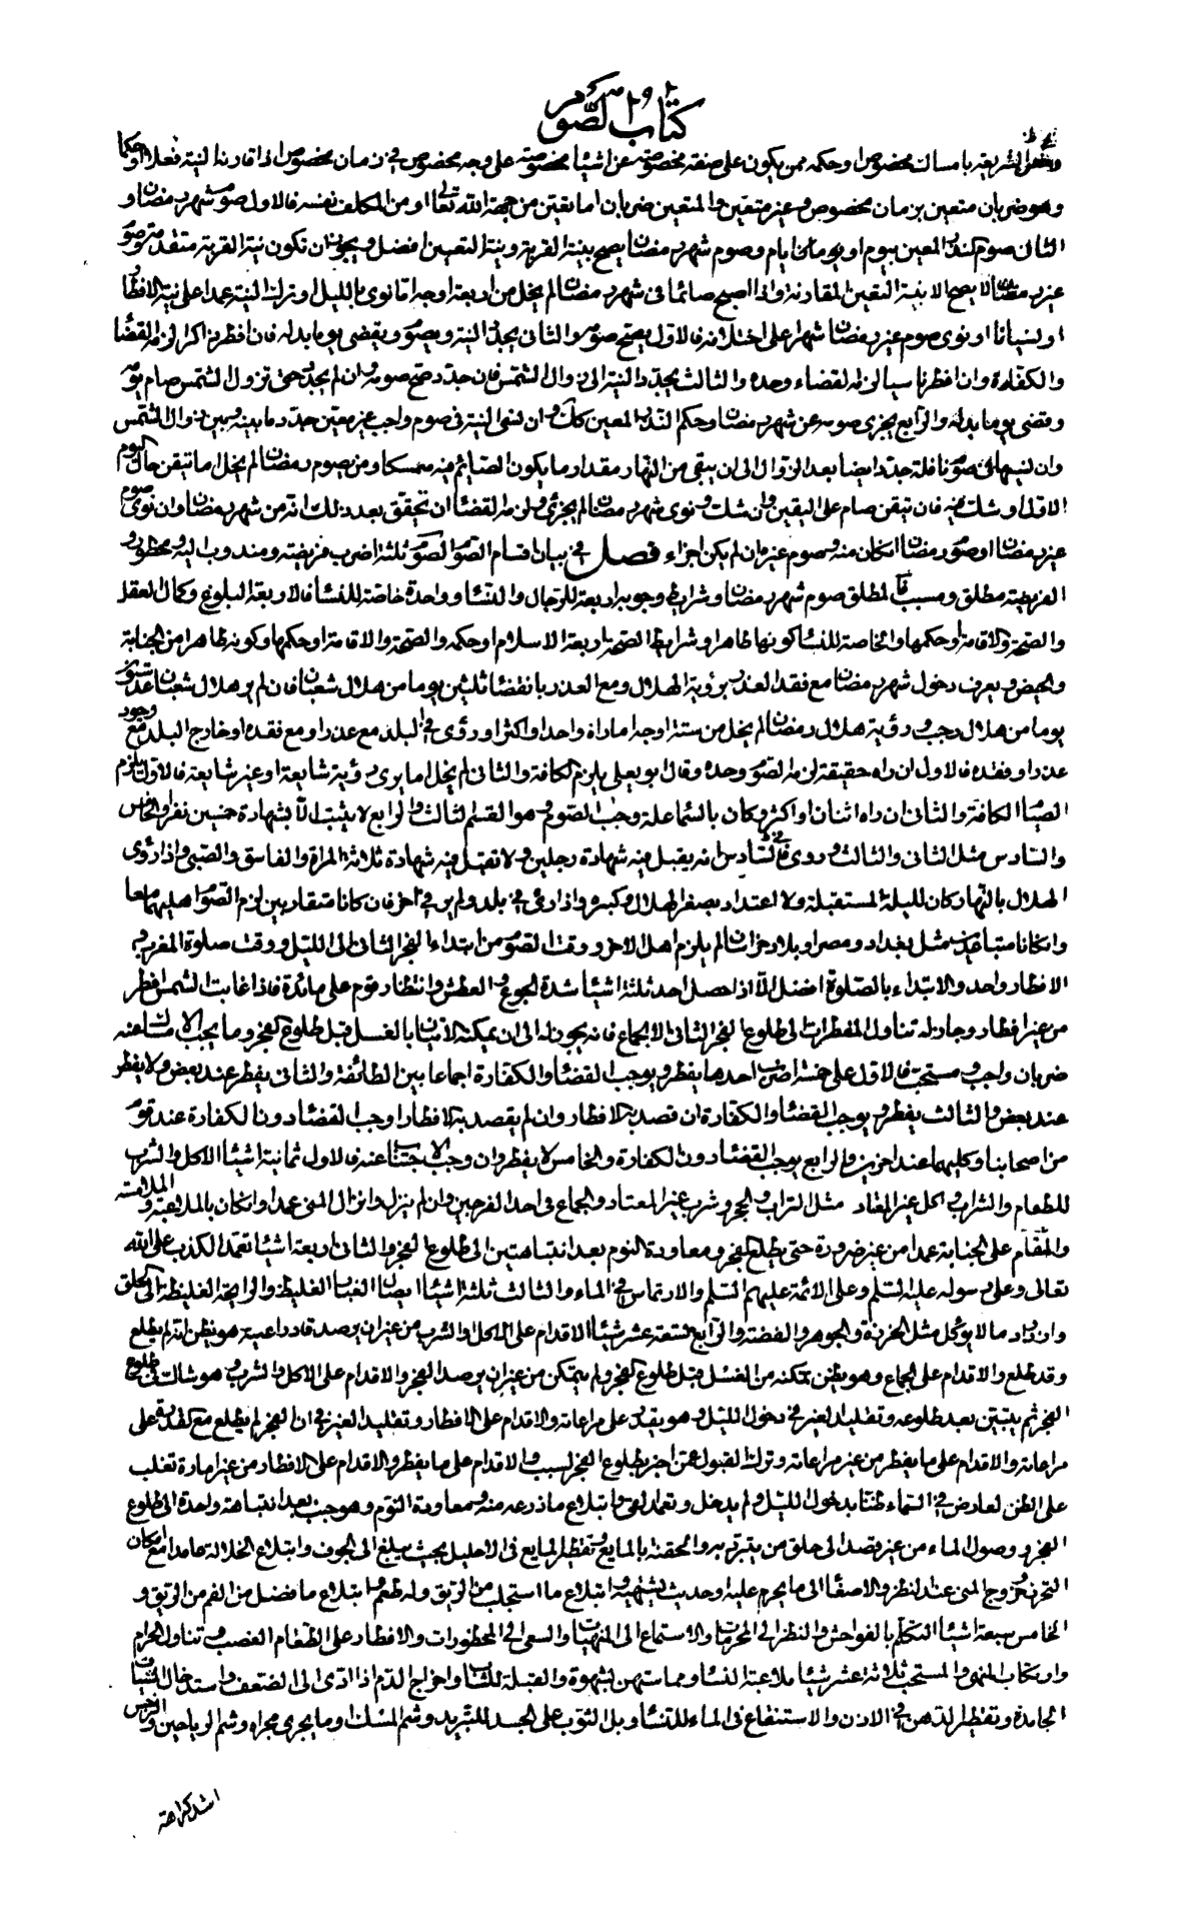 كتاب الصوم
وهو في الشريعة إمساك مخصوص او حكمه ممن يكون على صفة مخصوصة عن اشياء مخصوصة على وجه مخصوص في زمان مخصوص اذا قارنه النية فعلا او حكما
وهو ضربان متعين بزمان مخصوص وغير متعين والمتعين ضربان اما يتعين من جهة الله تعالى او من المكلف نفسه فالاول صوم شهر رمضان و
الثاني صوم النذر المعين بيوم او يومان او ايام وصوم شهر رمضان يصح بنية القربة ونية التعيين افضل ويجوز ان تكون نية القربة متقدمة وصوم
غير رمضان لا يصح الا بنية التعيين المقارنة واذا اصبح صائما في شهر رمضان لم يخل من اربعة اوجه اما نوى بالليل او ترك النية عمدا على نية الافطار
او نسيانا او نوى صوم غير رمضان شهرا على اختلافه فالاول يصح صومه والثاني يجدد النية ويصوم ويقضي يوما بدله فان افطر ذاكرا لزمه القضاء
والكفارة وان افطر ناسيا لزمه القضاء وحده والثالث يجدد النية الى زوال الشمس فان جدد صح صومه وان لم يجدد حتى تزول الشمس صام يومه
وقضى يوما بدله والرابع يجزي صومه عن شهر رمضان وحكم النذر المعين كذلك وان نسى النية في صوم واجب غير معين جدد ما بينه وبين زوال الشمس
وان نسيها في صوم نافلة جدد ايضا بعد الزوال الى ان يبقى من النهار مقدار ما يكون الصائم فيه ممسكا ومن صوم رمضان لم يخل اما تيقن حال اليوم
الاول او شك فيه فان تيقن صام على اليقين وان شك ونوى شهر رمضان لم يجزئ ولزمه القضاء ان تحقق بعد ذلك انه من شهر رمضان وان نوى صوم
غير رمضان او صوم رمضان ان كان منه وصوم غيره ان لم يكن اجزاه فصل في بيان اقسام الصوم الصوم ثلثة اضرب فريضة ومندوب اليه ومحظور و
الفريضة مطلق ومسبب فالمطلق صوم شهر رمضان وشرايط وجوبه اربعة للرجال والنساء وواحدة خاصة للنساء فالاربعة البلوغ وكمال العقل
والصحة والاقامة او حكمها والخاصة للنساء كونها طاهرا وشرايط الصحة اربعة الاسلام او حكمه والصحة والاقامة او حكمها وكونه طاهرا من الجنابة
والحيض ويعرف دخول شهر رمضان مع فقد العذر برؤية الهلال ومع العذر بانقضاء ثلثين يوما من هلال شعبان فان لم ير هلال شعبان عد ستون
يوما من هلال رجب ورؤية هلال رمضان لم يخل من ستة اوجه اما راه واحد او اكثر او رؤى في البلد مع عذر او مع فقده او خارج البلد مع وجود
عذر او فقده فالاول ان راه حقيقة لزمه الصوم وحده وقال ابو يعلى يلزم الكافة والثاني لم يخل اما يرى رؤية شايعة او غير شايعة فالاول يلزم
الصيام الكافة والثاني ان راه اثنان او اكثر وكان بالسماء علة وجب الصوم وهو القسم الثالث والرابع لا يثبت الا بشهادة خمسين نفرا والخامس
والسادس مثل الثاني والثالث وروى في السادس انه يقبل فيه شهادة رجلين ولا تقبل فيه شهادة ثلاثة المراة والفاسق والصبي واذا رؤى
الهلال بالنهار كان لليلة المستقبلة ولا اعتداد بصغر الهلال وكبره واذا رؤى في بلد ولم ير في اخر فان كانا متقاربين لزم الصوم اهليهما معا
وان كانا متباعدين مثل بغداد ومصر او بلاد خراسان لم يلزم اهل الاخر ووقت الصوم من ابتداء الفجر الثاني الى الليل ووقت صلوة المغرب و
الافطار واحد والابتداء بالصلوة افضل الا اذا حصل احد ثلثة اشياء شدة الجوع والعطش وانتظار قوم على مائدة فاذا غابت الشمس افطر
من غير افطار وجاز له تناول المفطرات الى طلوع الفجر الثاني الا الجماع فانه يجوز له الى ان يمكنه الاتيان بالغسل قبل طلوع الفجر وما يجب الامساك عنه
ضربان واجب ومستحب فالاول على خمسة اضرب احدها يفطر ويوجب القضاء والكفارة اجماعا بين الطائفة والثاني يفطر عند بعض ولا يفطر
عند بعض والثالث يفطر ويوجب القضاء والكفارة ان قصد به الافطار وان لم يقصد به الافطار اوجب القضاء دون الكفارة عند قوم
من اصحابنا وكليهما عند اخرين والرابع يوجب القضاء دون الكفارة والخامس لا يفطر وان وجب الاجتناب عنه فالاول ثمانية اشياء الاكل والشرب
للطعام والشراب واكل غير المعتاد مثل التراب والحجر وشرب غير المعتاد والجماع في احد الفرجين وان لم ينزل وانزال المنى عمدا وان كان بالملاعبة والملامسة
والمقام على الجنابة عمدا من غير ضرورة حتى يطلع الفجر ومعاودة النوم بعد انتباهتين الى طلوع الفجر والثاني اربعة اشياء تعمد الكذب على الله
تعالى وعلى رسوله عليه السلم وعلى الائمة عليهم السلم والارتماس في الماء والثالث ثلثة اشياء ايصال الغبار الغليظ والرايحة الغليظة الى الحلق
وازدراد ما لا يؤكل مثل الخرزة والجوهر والفضة والرابع تسعة عشر شيئا الاقدام على الاكل والشرب من غير ان يرصد قادرا عليه هو يظن انه لم يطلع
وقد طلع والاقدام على الجماع وهو يظن تمكنه من الغسل قبل طلوع الفجر ولم يتمكن من غير ان يرصد الفجر والاقدام على الاكل والشرب وهو شاك في طلوع
الفجر ثم يتبين بعد طلوعه وتقليد الغير في دخول الليل وهو يقدر على مراعاته والاقدام على الافطار وتقليد الغير في ان الفجر لم يطلع مع القدرة على
مراعاته والاقدام على ما يفطر من غير مراعاته وترك القبول عمن اخبر بطلوع الفجر لسبب والاقدام على ما يفطر والاقدام على الافطار من غير امارة تغلب
على الظن لعارض في السماء ظنا بدخول الليل ولم يدخل وتعمد القى وابتلاع ما ذرعه منه ومعاودة النوم وهو جنب بعد انتباهة واحدة الى طلوع
الفجر ووصول الماء من غير قصد الى حلق من يتبرد به والحقنة بالمايع وتقطير المايع في الاحليل بحيث يبلغ الى الجوف وابتلاع الخلالة عامدا مع امكان
التحرز وخروج المنى عند النظر والاصغاء الى ما يحرم عليه او حديث يشتهيه وابتلاع ما استجلب من الريق وله طعم وابتلاع ما فضل من الفم من الريق و
الخامس سبعة اشياء التكلم بالفواحش والنظر الى المحرمات والاستماع الى المنهيات والسعى الى المحظورات والافطار على الطعام الغصب وتناول الحرام
وارتكاب المنهى والمستحب ثلاثة عشر شيئا ملاعبة النساء ومماستهن لشهوة والقبلة للشاب واخراج الدم اذا ادى الى الضعف واستدخال الشياف
الجامدة وتقطير الدهن في الاذن والاستنقاع في الماء للنساء وبل الثوب على الجسد للتبريد وشم المسك وما يجري مجراه وشم الرياحين والنرجس
اشد كراهة